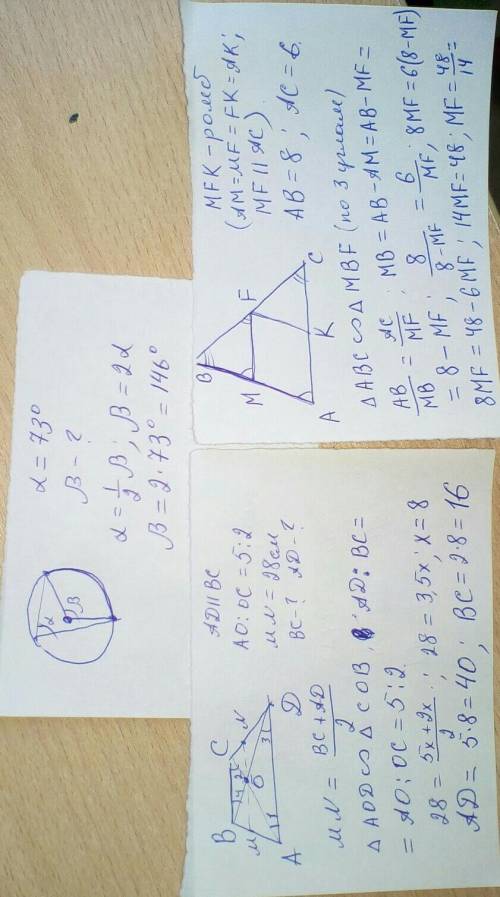 α = 73°
β - ?
α = 1/2 β ; β = 2α
β = 2 · 73° = 146°
α
β
MFK - ромб
(AM = MF = FK = AK;
MF ∥ AC)
AB = 8 ; AC = 6.
B
M
F
A
K
C
△ABC ∽ △MBF (по 3 углам)
AB/MB = AC/MF ; MB = AB - AM = AB - MF =
= 8 - MF ; 8/(8-MF) = 6/MF ; 8MF = 6(8-MF)
8MF = 48 - 6MF ; 14MF = 48 ; MF = 48/14 =
AD ∥ BC
AO : OC = 5 : 2
MN = 28 см
BC - ? AD - ?
B
C
M
N
O
A
D
1
2
3
4
MN = (BC + AD)/2
△AOD ∽ △COB ; AD : BC =
= AO : OC = 5 : 2.
28 = (5x + 2x)/2 ; 28 = 3,5x ; x = 8
AD = 5·8 = 40 ; BC = 2·8 = 16